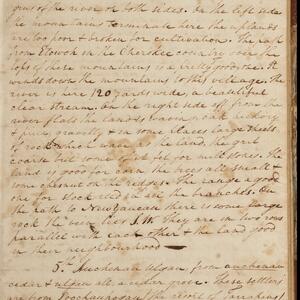 of the river on both sides. On the left side
the mountains terminate here the uplands
are too poor & broken for cultivation. The path
from Etowoh in the Cherokee country over the
tops of these mountains is a pretty good one. It
winds down the mountains to this village. The
river is here 120 yards wide, a beautiful
clear stream. On the right side off from the
river flats the land is wavy oak hickory
& pine, gravelly & in some places large sheets
of rock which wave as the land, the grit
coarse but some of it fit for mill stones. The
land is good for corn the trees are small &
some chesnut on the ridges. The range a good
one for stock reed in all the branches. On
the path to New yaucau there is some large
rock the vein lies S.W. They are in two rows
parallel with each other & the land good
in their neighbourhood
5th Auchenau Ulgau from auchenau
cedar & ulgau all: a cedar grove. These settlers
are from